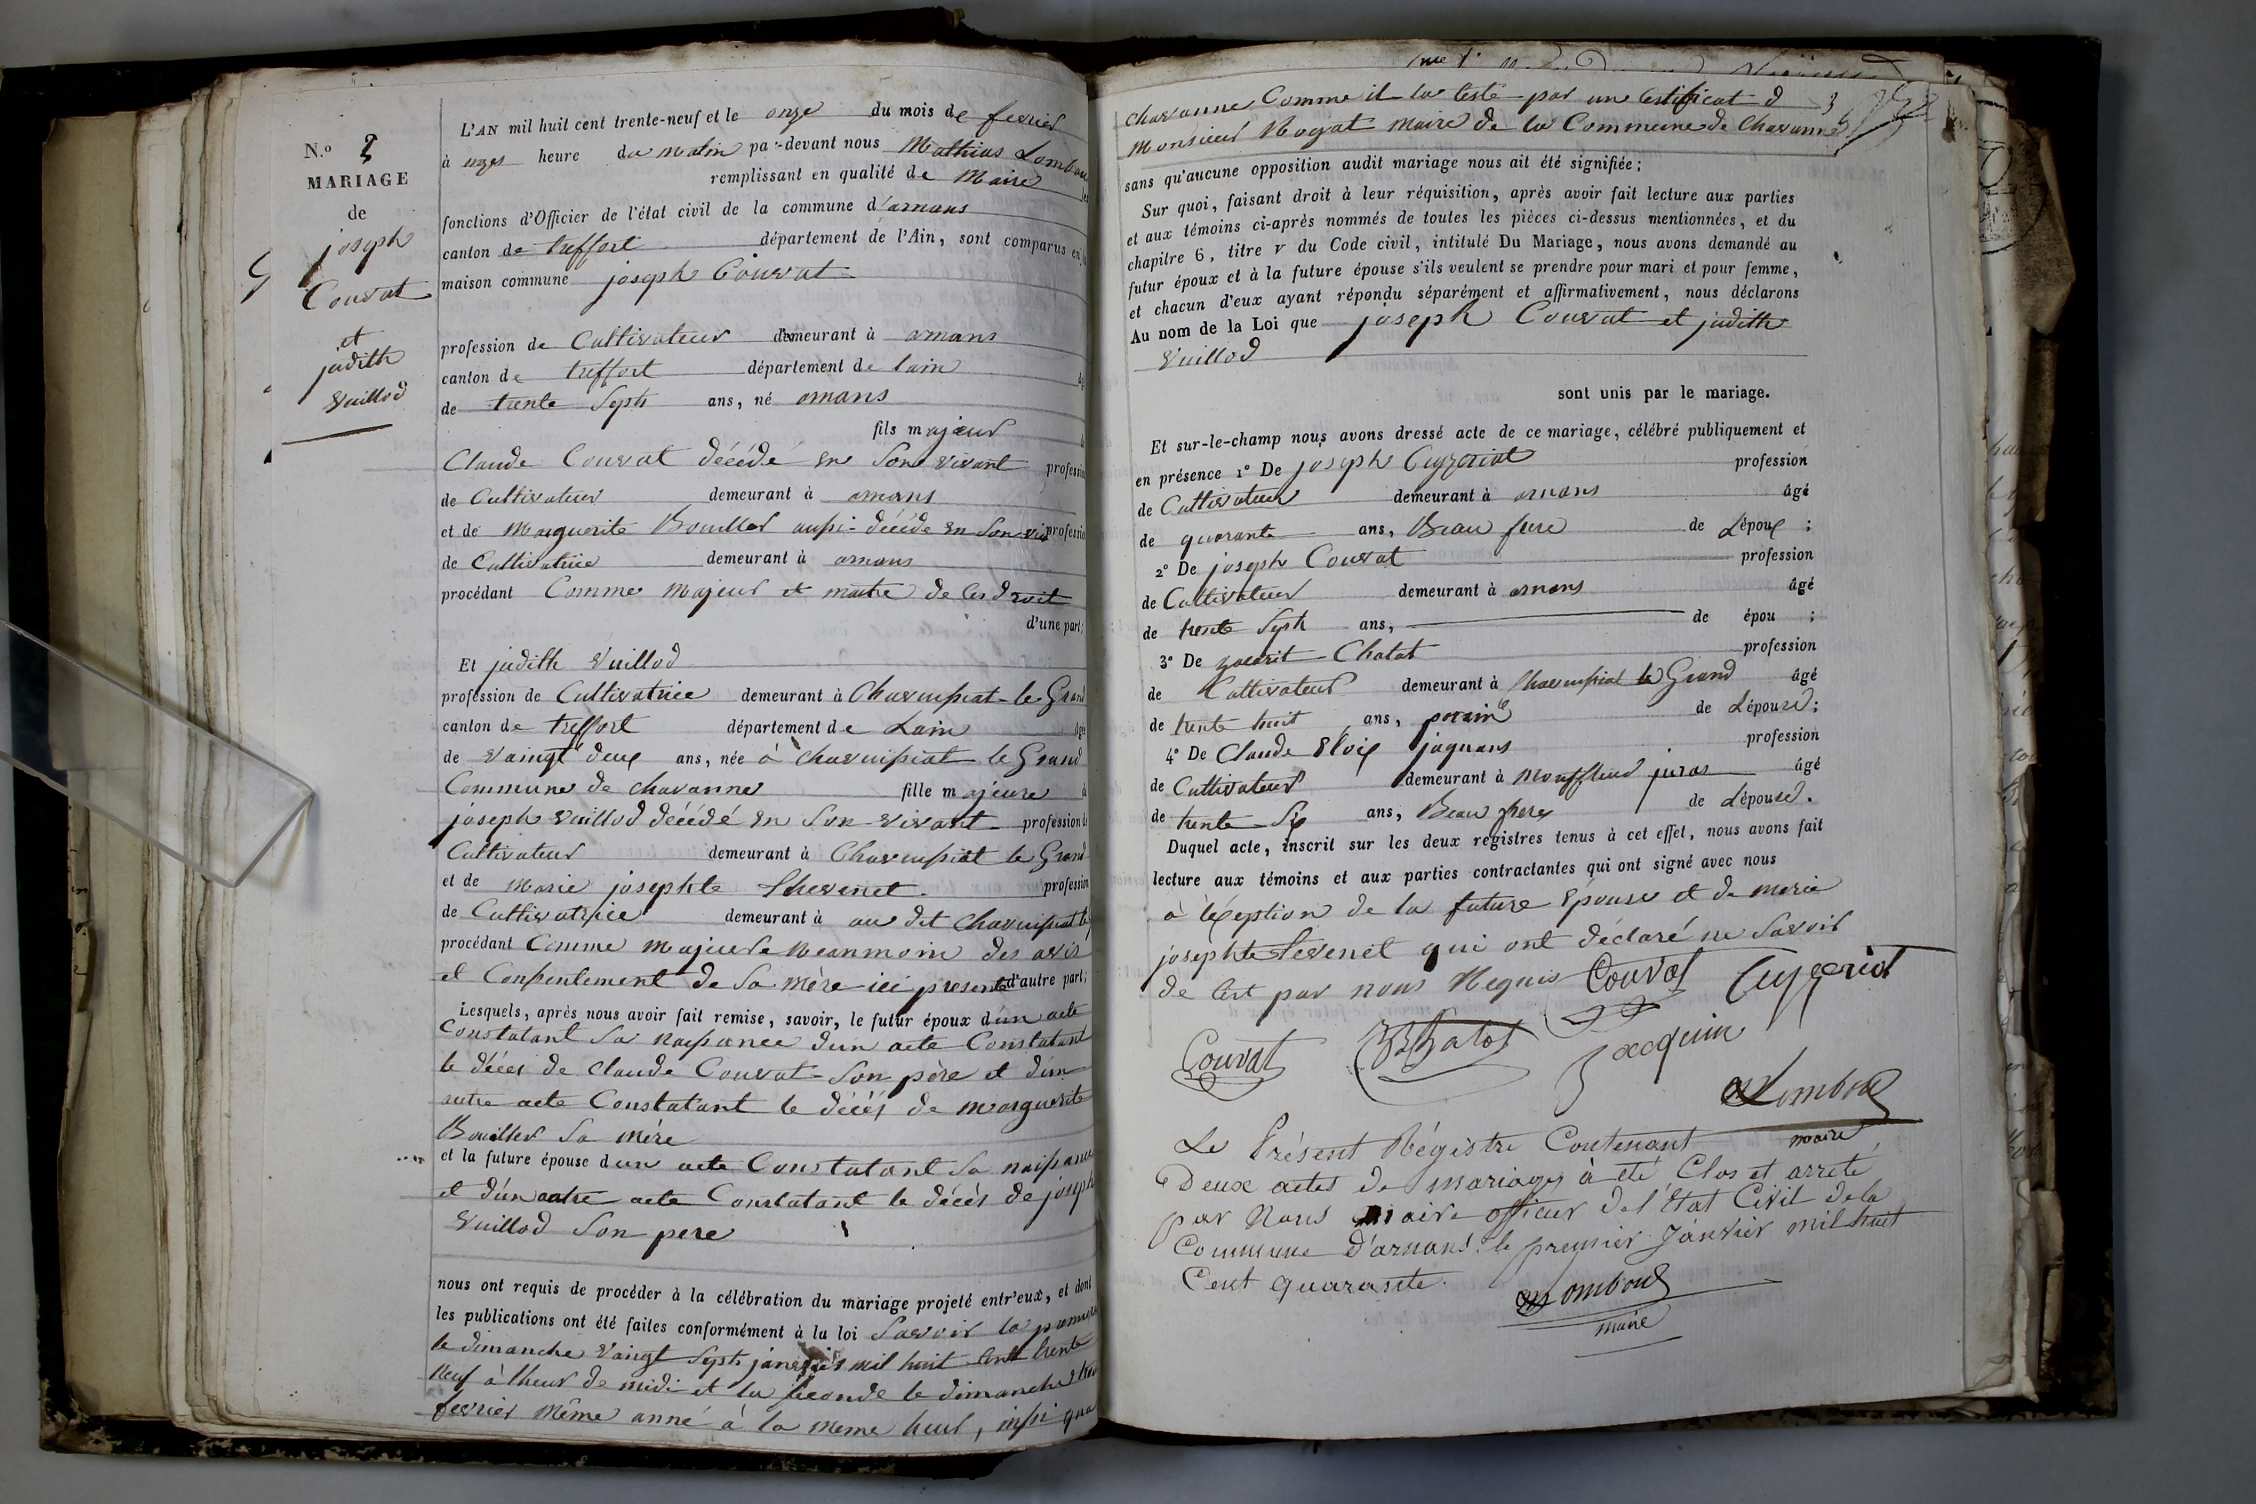 N.º 2
MARIAGE
de
joseph
Couvat
et
judith
Vuillod
L'AN mil huit cent trente-neuf et le onze du mois de fevrier
à onzes heure du matin par-devant nous Mathias Lombard
remplissant en qualité de Maire les
fonctions d'Officier de l'état civil de la commune d'arnans
canton de treffort département de l'Ain, sont comparus en la
maison commune joseph Couvat
profession de Cultivateur demeurant à arnans
canton de treffort département de lain
de trente Septs ans, né arnans
fils majeur
Claude Couvat décédé en Son vivant profession
de Cultivateur demeurant à arnans
et de Marguerite Bouiller aussi décédé en Son vi profession
de Cultivatrice demeurant à arnans
procédant Comme Majeur et maitre de Ces droit
d'une part;
Et judith Vuillod
profession de Cultivatrice demeurant à Charnissiat le Grand
canton de treffort département de Lain âgée
de Vaingt deux ans, née à Charnissiat le Grand
Commune de chavanne fille majeure
joseph Vuillod décédé en Son vivant profession de
Cultivateur demeurant à Charnissiat le Grand
et de Marie josephte Thevenet profession
de Cultivatrice demeurant à au dit Charnissiat le
procédant Comme Majeure Neanmoin des avis
et Consentement de Sa mère ici presente d'autre part;
Lesquels, après nous avoir fait remise, savoir, le futur époux d'un acte
Constatant Sa naissance dun acte Constatant
le décès de Claude Couvat Son père et d'un
autre acte Constatant le décès de marguerite
Bouiller Sa mère
et la future épouse dun acte Constatant Sa naissance
et d'un autre acte Constatant le décès de joseph
Vuillod Son pere
nous ont requis de procéder à la célébration du mariage projeté entr'eux, et dont
les publications ont été faites conformément à la loi Savoir la premiere
le dimanche Vaingt Septs janvier mil huit Cent trente
Neuf à lheur de midi et la seconde le dimanche trois
fevrier Même anné à la meme heur, insi qua
chavanne Comme il la testé par un Certificat d
Monsieur Rogat maire de la Commune de Chavanne
sans qu'aucune opposition audit mariage nous ait été signifiée;
Sur quoi, faisant droit à leur réquisition, après avoir fait lecture aux parties
et aux témoins ci-après nommés de toutes les pièces ci-dessus mentionnées, et du
chapitre 6, titre v du Code civil, intitulé Du Mariage, nous avons demandé au
futur époux et à la future épouse s'ils veulent se prendre pour mari et pour femme,
et chacun d'eux ayant répondu séparément et affirmativement, nous déclarons
Au nom de la Loi que joseph Couvat et judith
Vuillod
sont unis par le mariage.
Et sur-le-champ nous avons dressé acte de ce mariage, célébré publiquement et
en présence 1º De joseph Cuyzeriat profession
de Cultivateur demeurant à arnans âgé
de quarante ans, Beau frere de Lépoux ;
2º De joseph Couvat profession
de Cultivateur demeurant à arnans âgé
de trente Septs ans, de épou ;
3º De Chatat profession
de Cultivateur demeurant à Charnissiat le Grand âgé
de trente huit ans, de Lépouse;
4º De Claude Eloix jaquans profession
de Cultivateur demeurant à Monffleur juras âgé
de trente Six ans, Beau frere de Lépouse.
Duquel acte, inscrit sur les deux registres tenus à cet effet, nous avons fait
lecture aux témoins et aux parties contractantes qui ont signé avec nous
à léxeption de la future Epouse et de marie
josephte Tevenet qui ont déclaré ne Savoir
de Cest par nous Requis Couvat Cuyzeriat
Couvat Chatot Jacquin
Lombard
maire
Le Présent Régistre Contenant
Deux actes de Mariages à été Clos et arreté
par Nous Maire officier de l'Etat Civil de la
Commune D'arnans. le premier Janvier mil huit
Cent quarante.
Lombard
maire